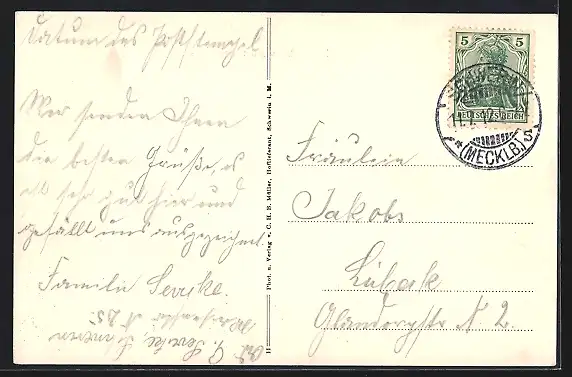 Datum des Poststempel
Wir senden Ihnen
die besten Grüße, es
ist sehr gut hier und
gefällt uns ausgezeichnet.
Familie
Phot. u. Verlag v. C. H. B. Müller, Hoflieferant, Schwerin i. M.
5 5
DEUTSCHES REICH
SCHWERIN
11.7.12
* (MECKLB.) S
Fräulein
Jakobs
Lübeck
Glandorpstr N 2.